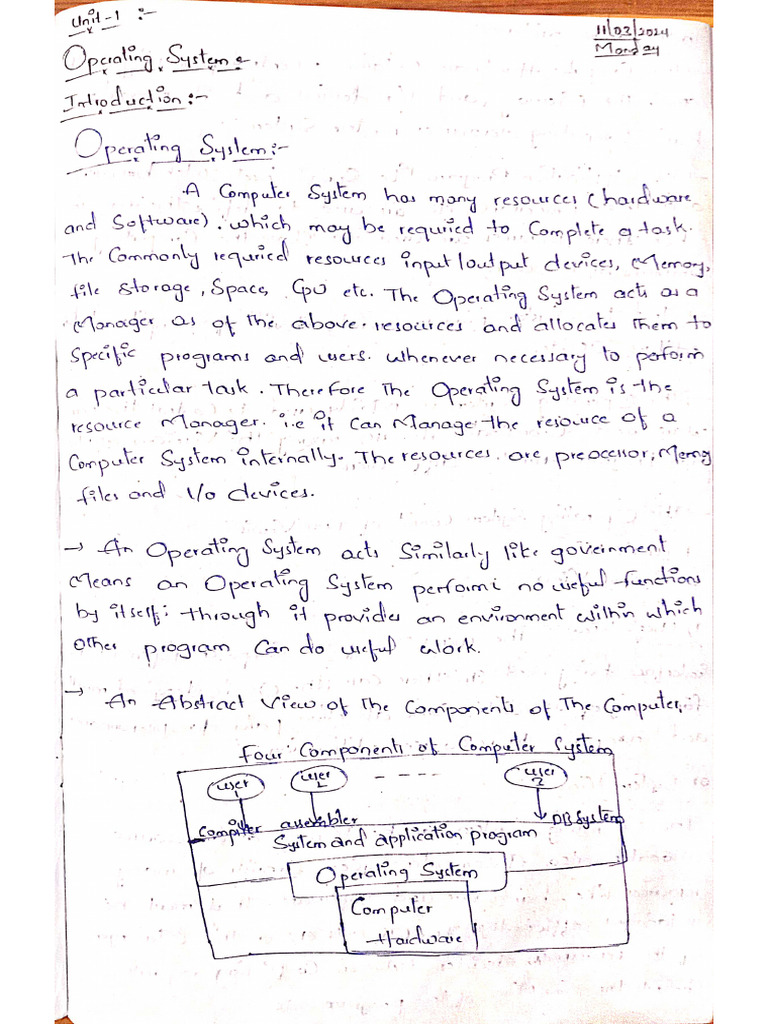 Unit-1 :-
11/03/2024
Monday
Operating System
Introduction:-
Operating System:-
A Computer System has many resources (hardware
and Software). which may be required to Complete a task.
The Commonly required resources input/output devices, Memory,
file Storage, Space, CPU etc. The Operating System acts as a
Manager as of the above. resources and allocates them to
Specific programs and users. whenever necessary to perform
a particular task. Therefore The Operating System is the
resource Manager. i.e it Can Manage the resource of a
Computer System internally. The resources are, preocessor, Memory
files and I/o devices.
→ An Operating System acts Similarly like government
Means an Operating System performs no useful functions
by itself; through it provides an environment within which
other program Can do useful work.
→ An Abstract View of The Components of The Computer.
Four Components of Computer System
user 1 user 2 ---- user 3
Compiler assembler DB System
System and application program
Operating System
Computer
Hardware